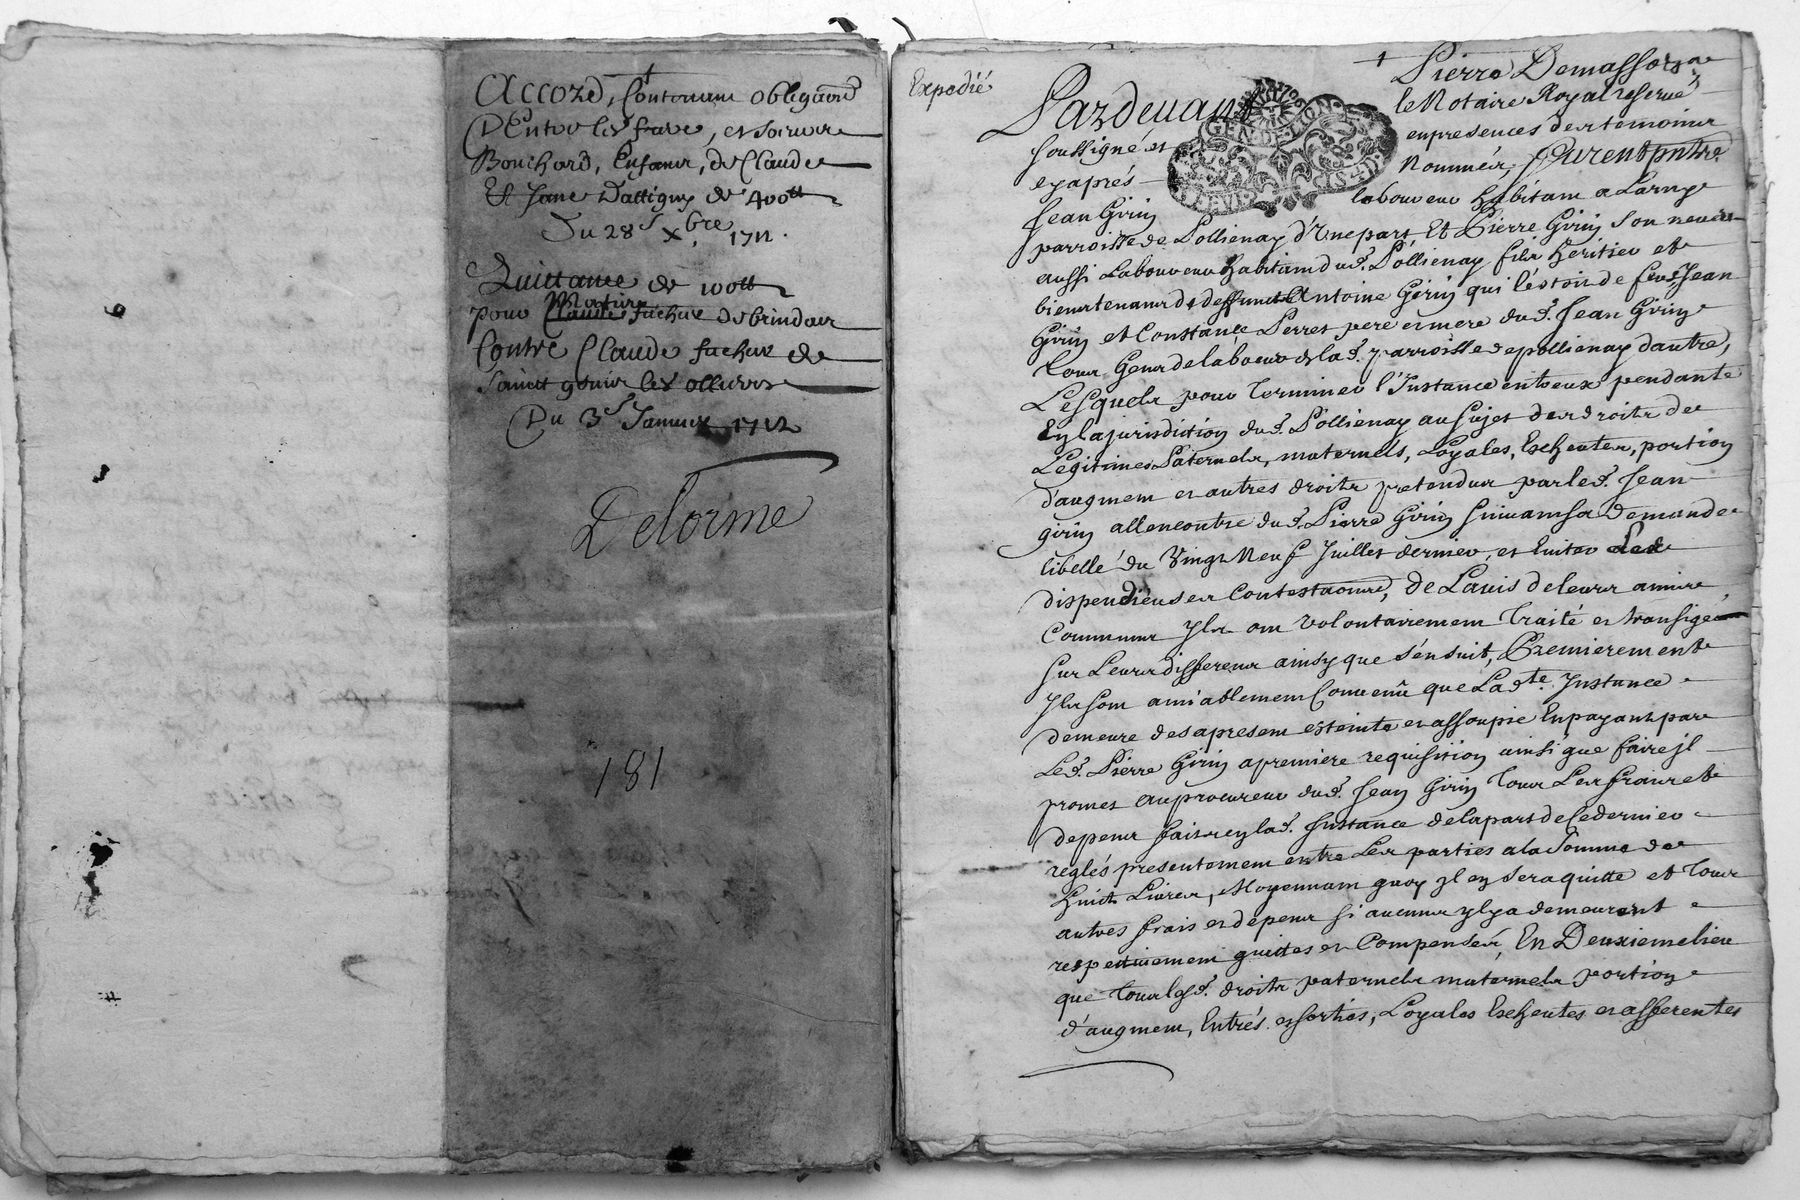 Accord, Contenant obligaon
D'Entre les frere, et soeur
Bouchard, Enfans, de Claude
Et Jane Dattigny de 400tt
Du 28e xbre 1711.
Quittance de 100tt
pour Claude fuchue de brindar
Contre Claude fuchue de
Sainct genis les ollieres
Du 3e Janvier 1712
Delorme
181
Expedié
Pardevant Pierre Demassoz
le Notaire Royal reservé
soussigné et en presences des temoins
GEN DE LION
cy aprés Nommés, furent pntre
Jean Girin laboureur habitant a Larny
parroisse de Pollienay d'Une part Et Pierre Girin son neveu
aussi Laboureur habitant dud. Pollienay fils heritier et
bientenant de deffunct Antoine Girin qui l'étoit de feus Jean
Girin et Constance Perret pere et mere dud. Jean Girin
tous Gens de labeur de lad. parroisse de pollienay d'autre,
Lesquels pour terminer l'Instance entreux pendante
En la jurisdiction dud. Pollienay au sujet des droits de
Legitimes Paternels, maternels, Loyales, Escheutes, portion
d'augment et autres droits pretendus par led. Jean
girin allencontre dud. Pierre Girin suivant sa demande
libellé du Vingt Neuf Juillet dernier, et Eviter Les
dispendieuses Contestaons, de L'avis de leurs amis
Communs Ils ont volontairement Traité et transigé
sur Leurs differens ainsy que s'ensuit, Premierement
Ils sont ami'ablement Convenû que Ladte Instance
demeure des apresent esteinte et assoupie En payant par
Led. Pierre Girin a premiere requisition ainsi que faire jl
promet au procureur dud. Jean Girin tous Les frais et
depens faits en lad. Instance de la part de ce dernier
reglés presentement entre Les parties a la Somme de
huict Livres, Moyennant quoy jl en sera quitte et tous
autres frais et depens si aucuns yl y a demeurent
respectivement quittes et Compensés, En Deuxieme lieu
que tous lesd. droits paternels maternels portion
d'augment, Entrés et sorties, Loyales Escheutes et afferentes